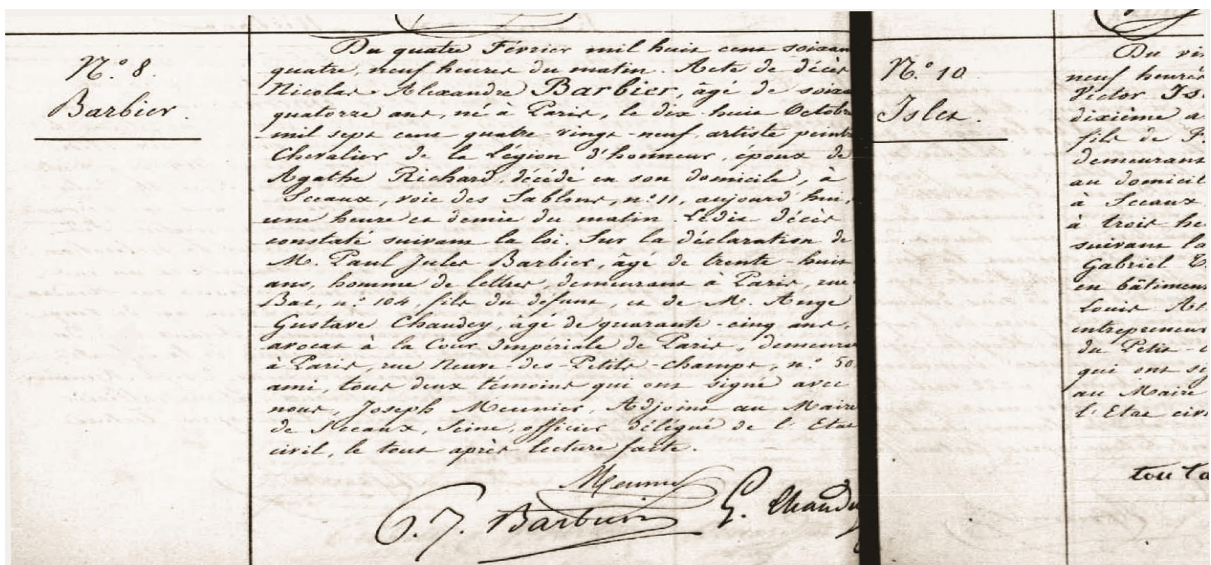 N.º 8.
Barbier.
Du quatre Février mil huit cent soixan
quatre, neuf heures du matin. Acte de décès
Nicolas Alexandre Barbier, âgé de soixan
quatorze ans, né à Paris, le dix huit Octobre
mil sept cent quatre vingt neuf, artiste peintre
Chevalier de la Légion d'honneur, époux de
Agathe Richard, décédé en son domicile, à
Sceaux, voie des Sablons, n.º 11, aujourd'hui,
une heure et demie du matin. Ledit décès
constaté suivant la loi. Sur la déclaration de
M. Paul Jules Barbier, âgé de trente-huit
ans, homme de lettres, demeurant à Paris, rue
Bac, n.º 104, fils du défunt, et de M. Ange
Gustave Chaudey, âgé de quarante-cinq ans,
avocat à la Cour Impériale de Paris, demeura
à Paris, rue Neuve-des-Petits-Champs, n.º 50
ami tous deux témoins qui ont signé avec
nous, Joseph Meunier, Adjoint au Maire
de Sceaux, Seine, officier délégué de l'Etat
civil, le tout après lecture faite.
Meunier
P. J. Barbier G. Chaudey
N.º 10
Islet.
Du vin
neuf heures
Victor Is
dixième a
fils de
demeurant
au domicil
à Sceaux
à trois he
suivant la
Gabriel
en bâtiment
Louis
entrepreneur
du Petit-
qui ont si
au Maire
l'Etat civi